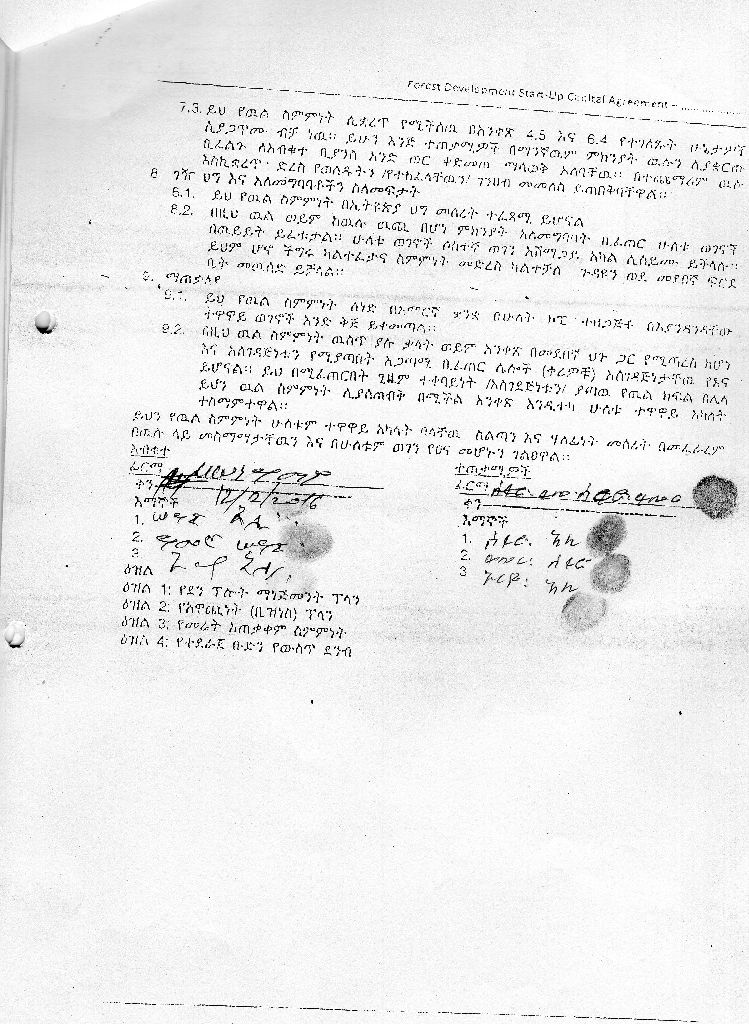 Forest Development Start-Up Capital Agreement –
7.3. ይህ የዉል ስምምነት ሊቋረጥ የሚችለዉ በአንቀጽ 4.5 እና 6.4 የተገለጹት ሁኔታዎች
ሲያጋጥሙ ብቻ ነዉ። ይሁን እንጅ ተጠቃሚዎች በማንኛዉም ምክንያት ዉሉን ሊያቋርጡ
ቢፈልጉ ለአብቁተ ቢያንስ አንድ ወር ቀድመዉ ማሳወቅ አለባቸዉ። በተጨማሪም ዉሉ
እስኪቋረጥ ድረስ የወሰዱትን /የተከፈላቸዉን/ ገንዘብ መመለስ ይጠበቅባቸዋል።
8 ገዥ ህግ እና አለመግባባቶችን ስለመፍታት
8.1. ይህ የዉል ስምምነት በኢትዮጵያ ህግ መሰረት ተፈጻሚ ይሆናል
8.2. በዚህ ዉል ወይም ከዉሉ ዉጪ በሆነ ምክንያት አለመግባባት ቢፈጠር ሁለቱ ወገኖች
በዉይይት ይፈቱታል። ሁለቱ ወገኖች ሶስተኛ ወገን አሸማጋይ አካል ሊሰይሙ ይችላሉ።
ይህም ሆኖ ችግሩ ካልተፈታና ስምምነት መድረስ ካልተቻለ ጉዳዩን ወደ መደበኛ ፍርድ
ቤት መዉሰድ ይቻላል።
9. ማጠቃለያ
9.1. ይህ የዉል ስምምነት ሰነድ በአማርኛ ቋንቋ በሁለት ኮፒ ተዘጋጅቶ በእያንዳንዳቸው
ተዋዋይ ወገኖች አንድ ቅጅ ይቀመጣል።
9.2. በዚህ ዉል ስምምነት ዉስጥ ያሉ ቃላት ወይም አንቀጽ በመደበኛ ህጉ ጋር የሚጣረስ ከሆነ
እና አስገዳጅነቱን የሚያጣበት አጋጣሚ ቢፈጠር ሌሎች (ቀሪዎቹ) አስገዳጅነታቸዉ የጸና
ይሆናል። ይህ በሚፈጠርበት ጊዜም ተቀባይነት /አስገዳጅነቱን/ ያጣዉ የዉል ክፍል በሌላ
ይህን ዉል ስምምነት ሊያስጠብቅ በሚችል አንቀጽ እንዲተካ ሁለቱ ተዋዋይ አካላት
ተስማምተዋል።
ይህን የዉል ስምምነት ሁለቱም ተዋዋይ አካላት ባላቸዉ ስልጣን እና ሃላፊነት መሰረት በመፈራረም
በዉሉ ላይ መስማማታቸዉን እና በሁለቱም ወገን የፀና መሆኑን ገልፀዋል።
አብቁተ
ፊርማ
ቀን 12/2/2016
እማኞች
1.
2.
3
ተጠቃሚዎች
ፊርማ
ቀን
እማኞች
1.
2.
3
ዕዝል
ዕዝል 1: የደን ፕሎት ማኔጅመንት ፕላን
ዕዝል 2: የአዋጪነት (ቢዝነስ) ፕላን
ዕዝል 3: የመሬት አጠቃቀም ስምምነት
ዕዝል 4: የተደራጀ ቡድን የውስጥ ደንብ